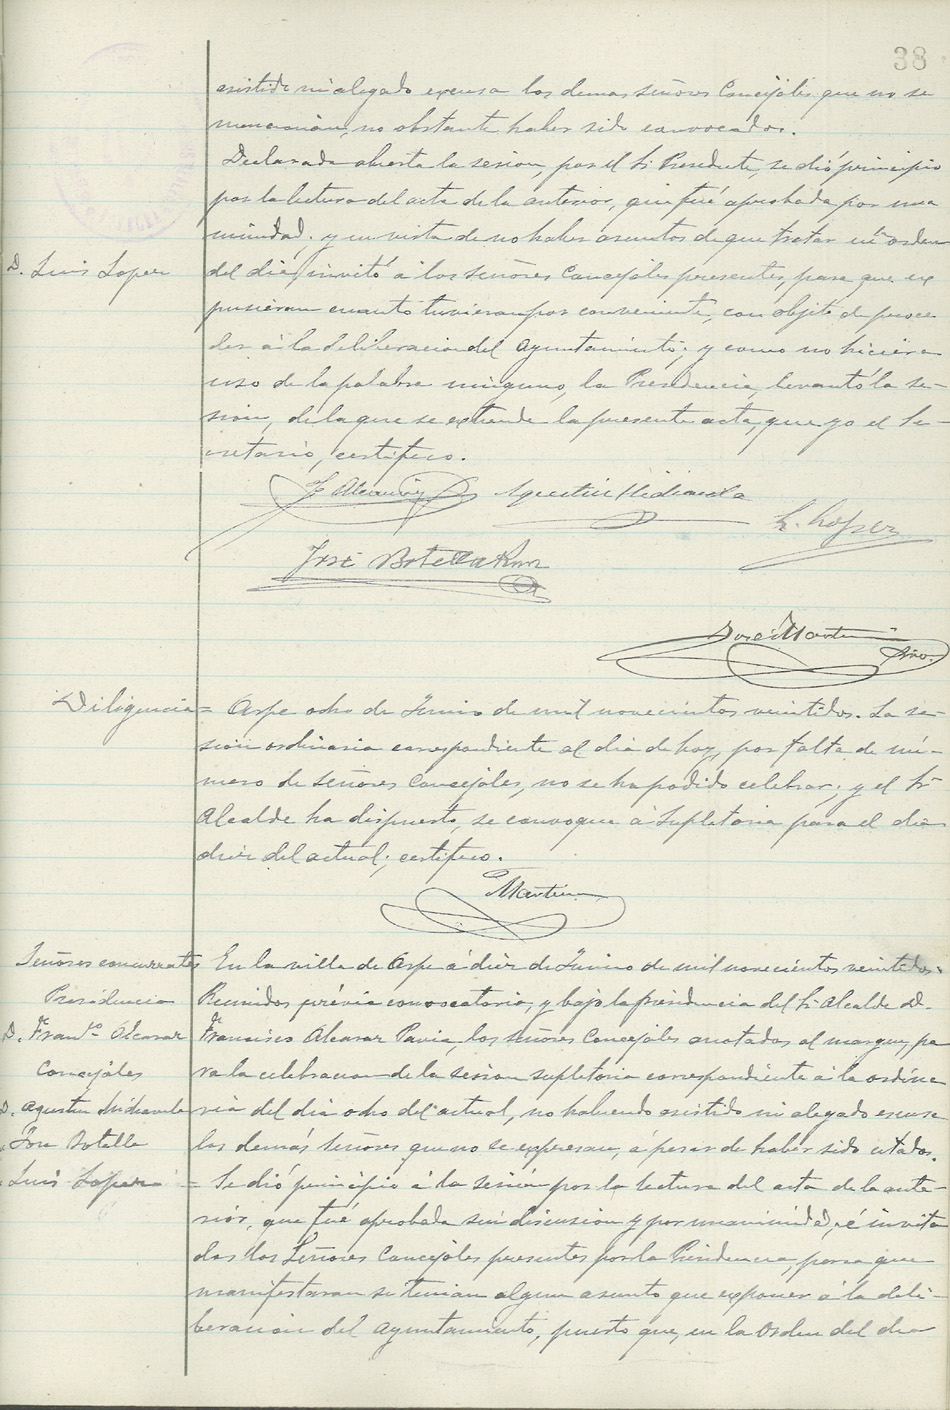 38
asistido ni alegado excusa los demas señores Concejales que no se
mencionan, no obstante haber sido convocados.
Declarada abierta la sesion, por el Sr. Presidente, se dió principio
por la lectura del acta de la anterior, que fué aprobada por una
nimidad. y en vista de no haber asuntos de que tratar en la orden
D. Luis Lopez
del dia, invitó á los señores Concejales presentes, para que ex
pusieran cuanto tuvieran por conveniente, con objeto de proce
der á la deliberacion del Ayuntamiento; y como no hiciera
uso de la palabra ninguno, la Presidencia, levantó la se-
sion, de la que se extiende la presente acta, que yo el Se-
cretario, certifico.
F. Alcaraz Agustin
L. Lopez
José Botella
José Martin
Srio.
Diligencia = Aspe ocho de Junio de mil novecientos veintidos. La se-
sion ordinaria correspondiente al dia de hoy, por falta de nú-
mero de señores Concejales, no se ha podido celebrar; y el Sr.
Alcalde ha dispuesto, se convoque á supletoria para el dia
diez del actual; certifico.
Martin
Señores concurrentes
Presidencia
D. Franco. Alcaraz
Concejales
D. Agustin
José Botella
Luis Lopez
En la villa de Aspe á diez de Junio de mil novecientos veintidos:
Reunidos prévia convocatoria, y bajo la presidencia del Sr. Alcalde D.
Francisco Alcaraz Pavia, los señores Concejales anotados al margen, pa
ra la celebracion de la sesion supletoria correspondiente á la ordina
ria del dia ocho del actual, no habiendo asistido ni alegado escusa
los demás señores que no se expresan, á pesar de haber sido citados.
= Se dió principio á la sesión por la lectura del acta de la ante-
rior, que fué aprobada sin discusion y por unanimidad, é invita
dos los Señores Concejales presentes por la Presidencia, para que
manifestaran si tenian algun asunto que exponer á la deli-
beracion del Ayuntamiento, puesto que, en la Orden del dia